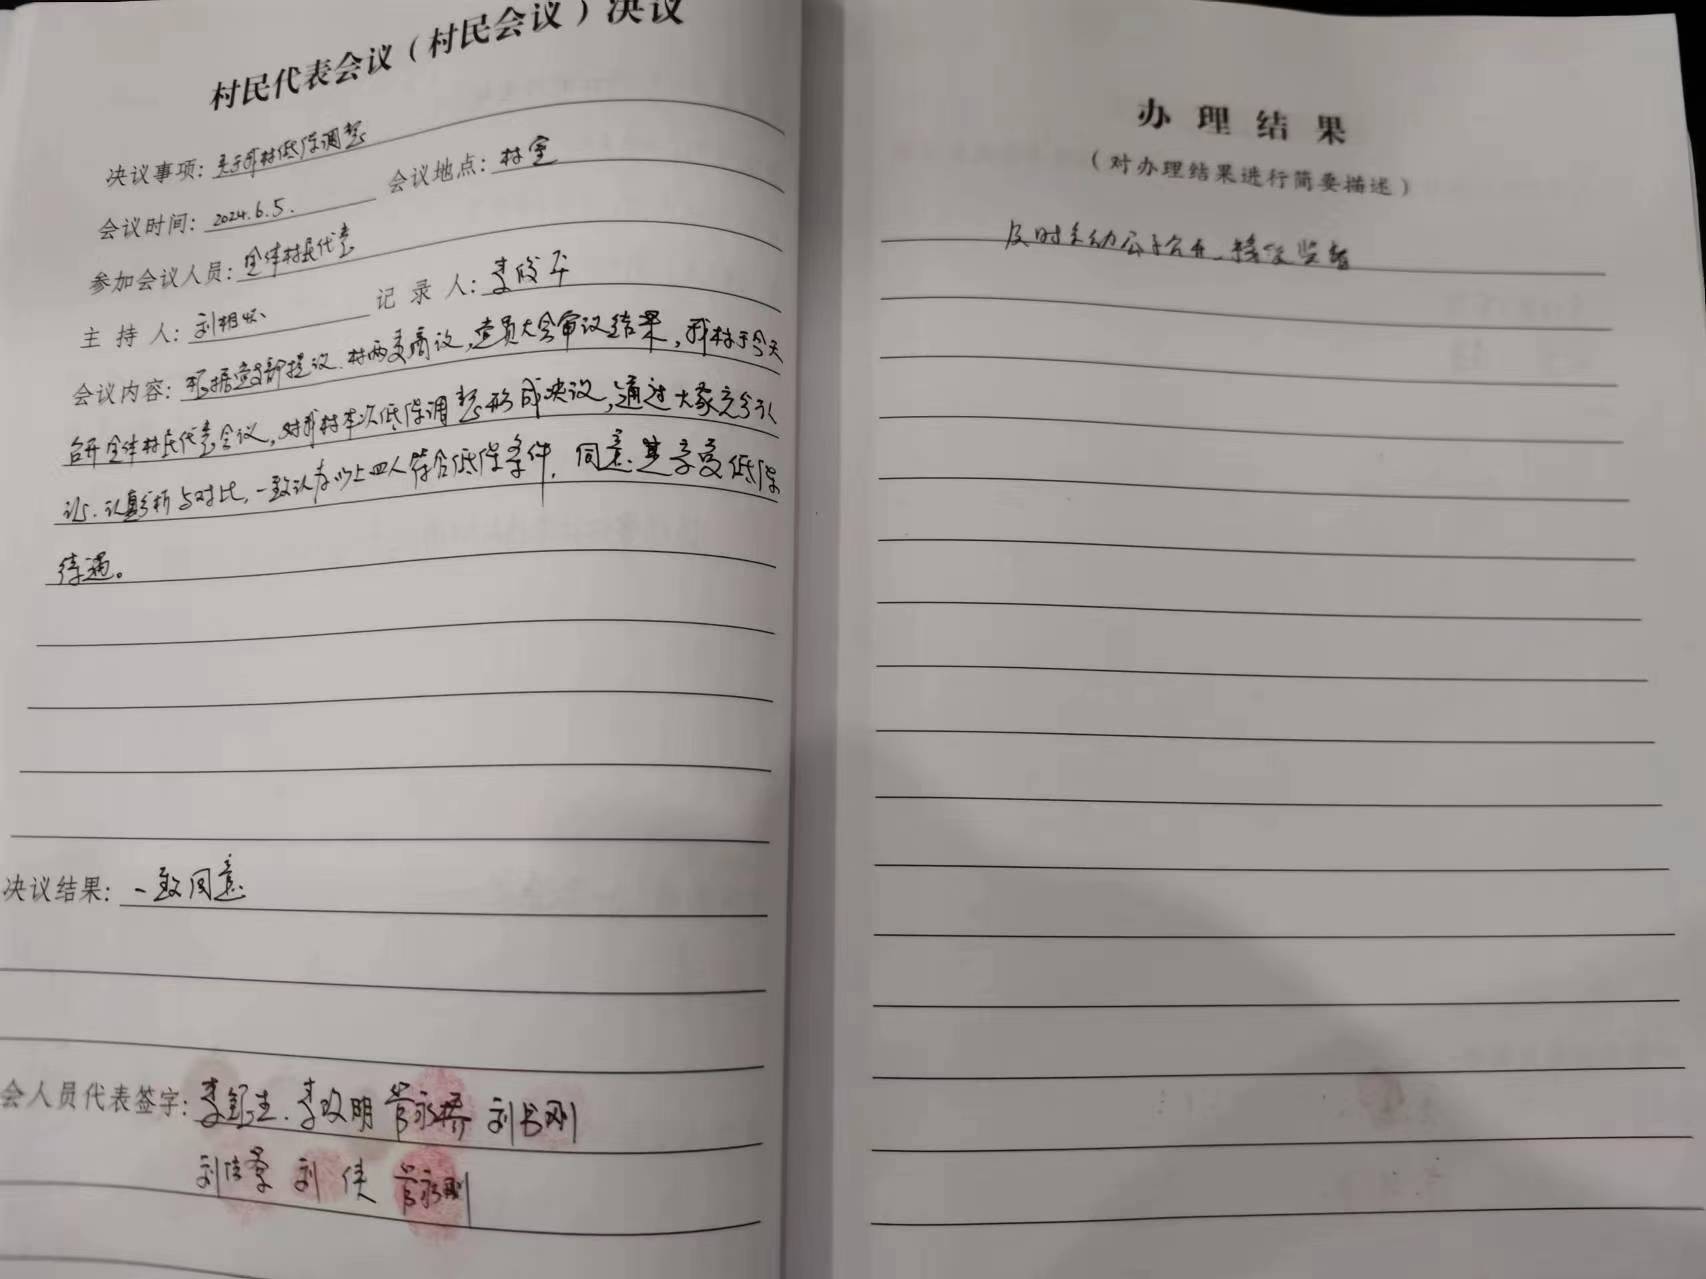 村民代表会议（村民会议）决议
决议事项：关于我村低保调整
会议时间：2024.6.5. 会议地点：村室
参加会议人员：全体村民代表
主持人：刘相怀 记录人：李俊平
会议内容：根据党支部提议、村两委商议，党员大会审议结果，我村于今天
召开全体村民代表会议，对我村本次低保调整形成决议，通过大家充分认
识、认真分析与对比，一致认为以上四人符合低保条件，同意其享受低保
待遇。
决议结果：一致同意
会人员代表签字：李银生、李改明 管永桥 刘书刚
刘佳学 刘侠 管永刚
办理结果
（对办理结果进行简要描述）
及时主动公示公开、接受监督